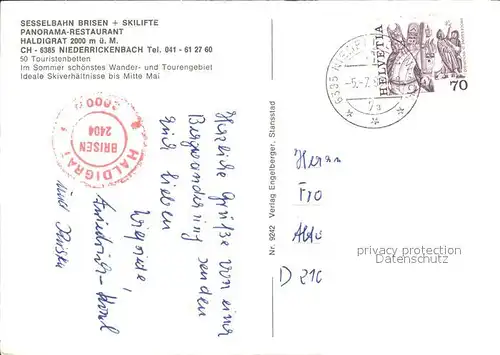 SESSELBAHN BRISEN + SKILIFTE
PANORAMA-RESTAURANT
HALDIGRAT 2000 m ü. M.
CH - 6385 NIEDERRICKENBACH Tel. 041 - 61 27 60
50 Touristenbetten
Im Sommer schönstes Wander- und Tourengebiet
Ideale Skiverhältnisse bis Mitte Mai
HALDIGRAT 2000
BRISEN
2404
Herzliche Grüße von einer
Bergwanderung senden
Euch lieben
Friedrich-Karl
und
Nr. 9242 Verlag Engelberger, Stansstad
6385
-5.-7.
HELVETIA
70
Herrn
D
privacy protection
DatenSchutz